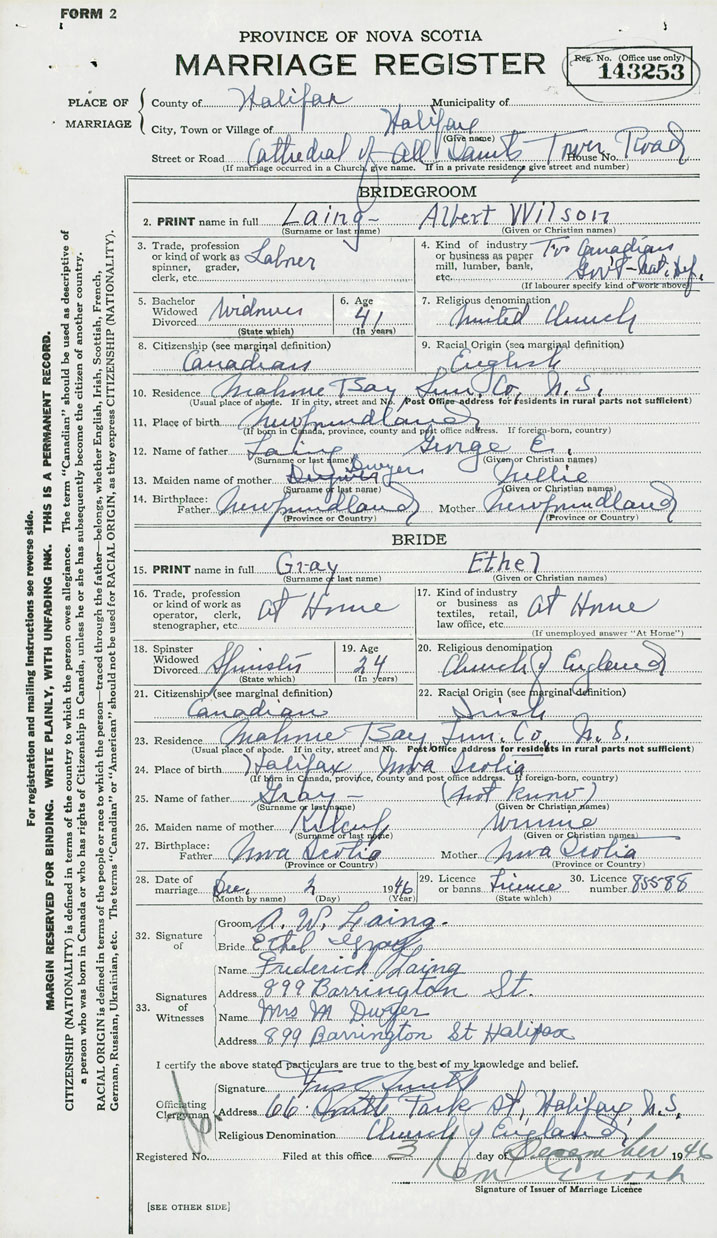 FORM 2
PROVINCE OF NOVA SCOTIA
MARRIAGE REGISTER
Reg. No. (Office use only)
143253
PLACE OF MARRIAGE
County of Halifax Municipality of
City, Town or Village of Halifax
(Give name)
Street or Road Cathedral of All Saints Tower Road House No.
(If marriage occurred in a Church, give name. If in a private residence give street and number)
BRIDEGROOM
2. PRINT name in full Laing- Albert Wilson
(Surname or last name) (Given or Christian names)
3. Trade, profession or kind of work as spinner, grader, clerk, etc. Labrer
4. Kind of industry or business as paper mill, lumber, bank, etc. Canadian Gov't-Nat. Def.
(If labourer specify kind of work above)
5. Bachelor Widowed Divorced Widower
(State which)
6. Age 41
(In years)
7. Religious denomination United Church
8. Citizenship (see marginal definition) Canadian
9. Racial Origin (see marginal definition) English
10. Residence Mahone Bay Lun. Co. N.S.
(Usual place of abode. If in city, street and No. Post Office address for residents in rural parts not sufficient)
11. Place of birth Newfoundland
(If born in Canada, province, county and post office address. If foreign-born, country)
12. Name of father Laing George E.
(Surname or last name) (Given or Christian names)
13. Maiden name of mother Dwyer Nellie
(Surname or last name) (Given or Christian names)
14. Birthplace: Father Newfoundland Mother Newfoundland
(Province or Country) (Province or Country)
BRIDE
15. PRINT name in full Gray Ethel
(Surname or last name) (Given or Christian names)
16. Trade, profession or kind of work as operator, clerk, stenographer, etc. at Home
17. Kind of industry or business as textiles, retail, law office, etc. at Home
(If unemployed answer "At Home")
18. Spinster Widowed Divorced Spinster
(State which)
19. Age 24
(In years)
20. Religious denomination Church of England
21. Citizenship (see marginal definition) Canadian
22. Racial Origin (see marginal definition) Irish
23. Residence Mahone Bay Lun. Co. N.S.
(Usual place of abode. If in city, street and No. Post Office address for residents in rural parts not sufficient)
24. Place of birth Halifax Nova Scotia
(If born in Canada, province, county and post office address. If foreign-born, country)
25. Name of father Gray- (not know)
(Surname or last name) (Given or Christian names)
26. Maiden name of mother Kilcup Winnie
(Surname or last name) (Given or Christian names)
27. Birthplace: Father Nova Scotia Mother Nova Scotia
(Province or Country) (Province or Country)
28. Date of marriage Dec. 2 1946
(Month by name) (Day) (Year)
29. Licence or banns Licence
(State which)
30. Licence number 85588
32. Signature of
Groom A. W. Laing.
Bride Ethel Gray
33. Signatures of Witnesses
Name Frederick Laing
Address 899 Barrington St.
Name Mrs M Dwyer
Address 899 Barrington St Halifax
I certify the above stated particulars are true to the best of my knowledge and belief.
Officiating Clergyman
Signature
Address 66 South Park St, Halifax N.S.
Religious Denomination Church of England
Registered No. Filed at this office 3 day of December 1946
Signature of Issuer of Marriage Licence
[SEE OTHER SIDE]
For registration and mailing instructions see reverse side.
MARGIN RESERVED FOR BINDING. WRITE PLAINLY, WITH UNFADING INK. THIS IS A PERMANENT RECORD.
CITIZENSHIP (NATIONALITY) is defined in terms of the country to which the person owes allegiance. The term "Canadian" should be used as descriptive of
a person who was born in Canada or who has rights of Citizenship in Canada, unless he or she has subsequently become the citizen of another country.
RACIAL ORIGIN is defined in terms of the people or race to which the person—traced through the father—belongs, whether English, Irish, Scottish, French,
German, Russian, Ukrainian, etc. The terms "Canadian" or "American" should not be used for RACIAL ORIGIN, as they express CITIZENSHIP (NATIONALITY).